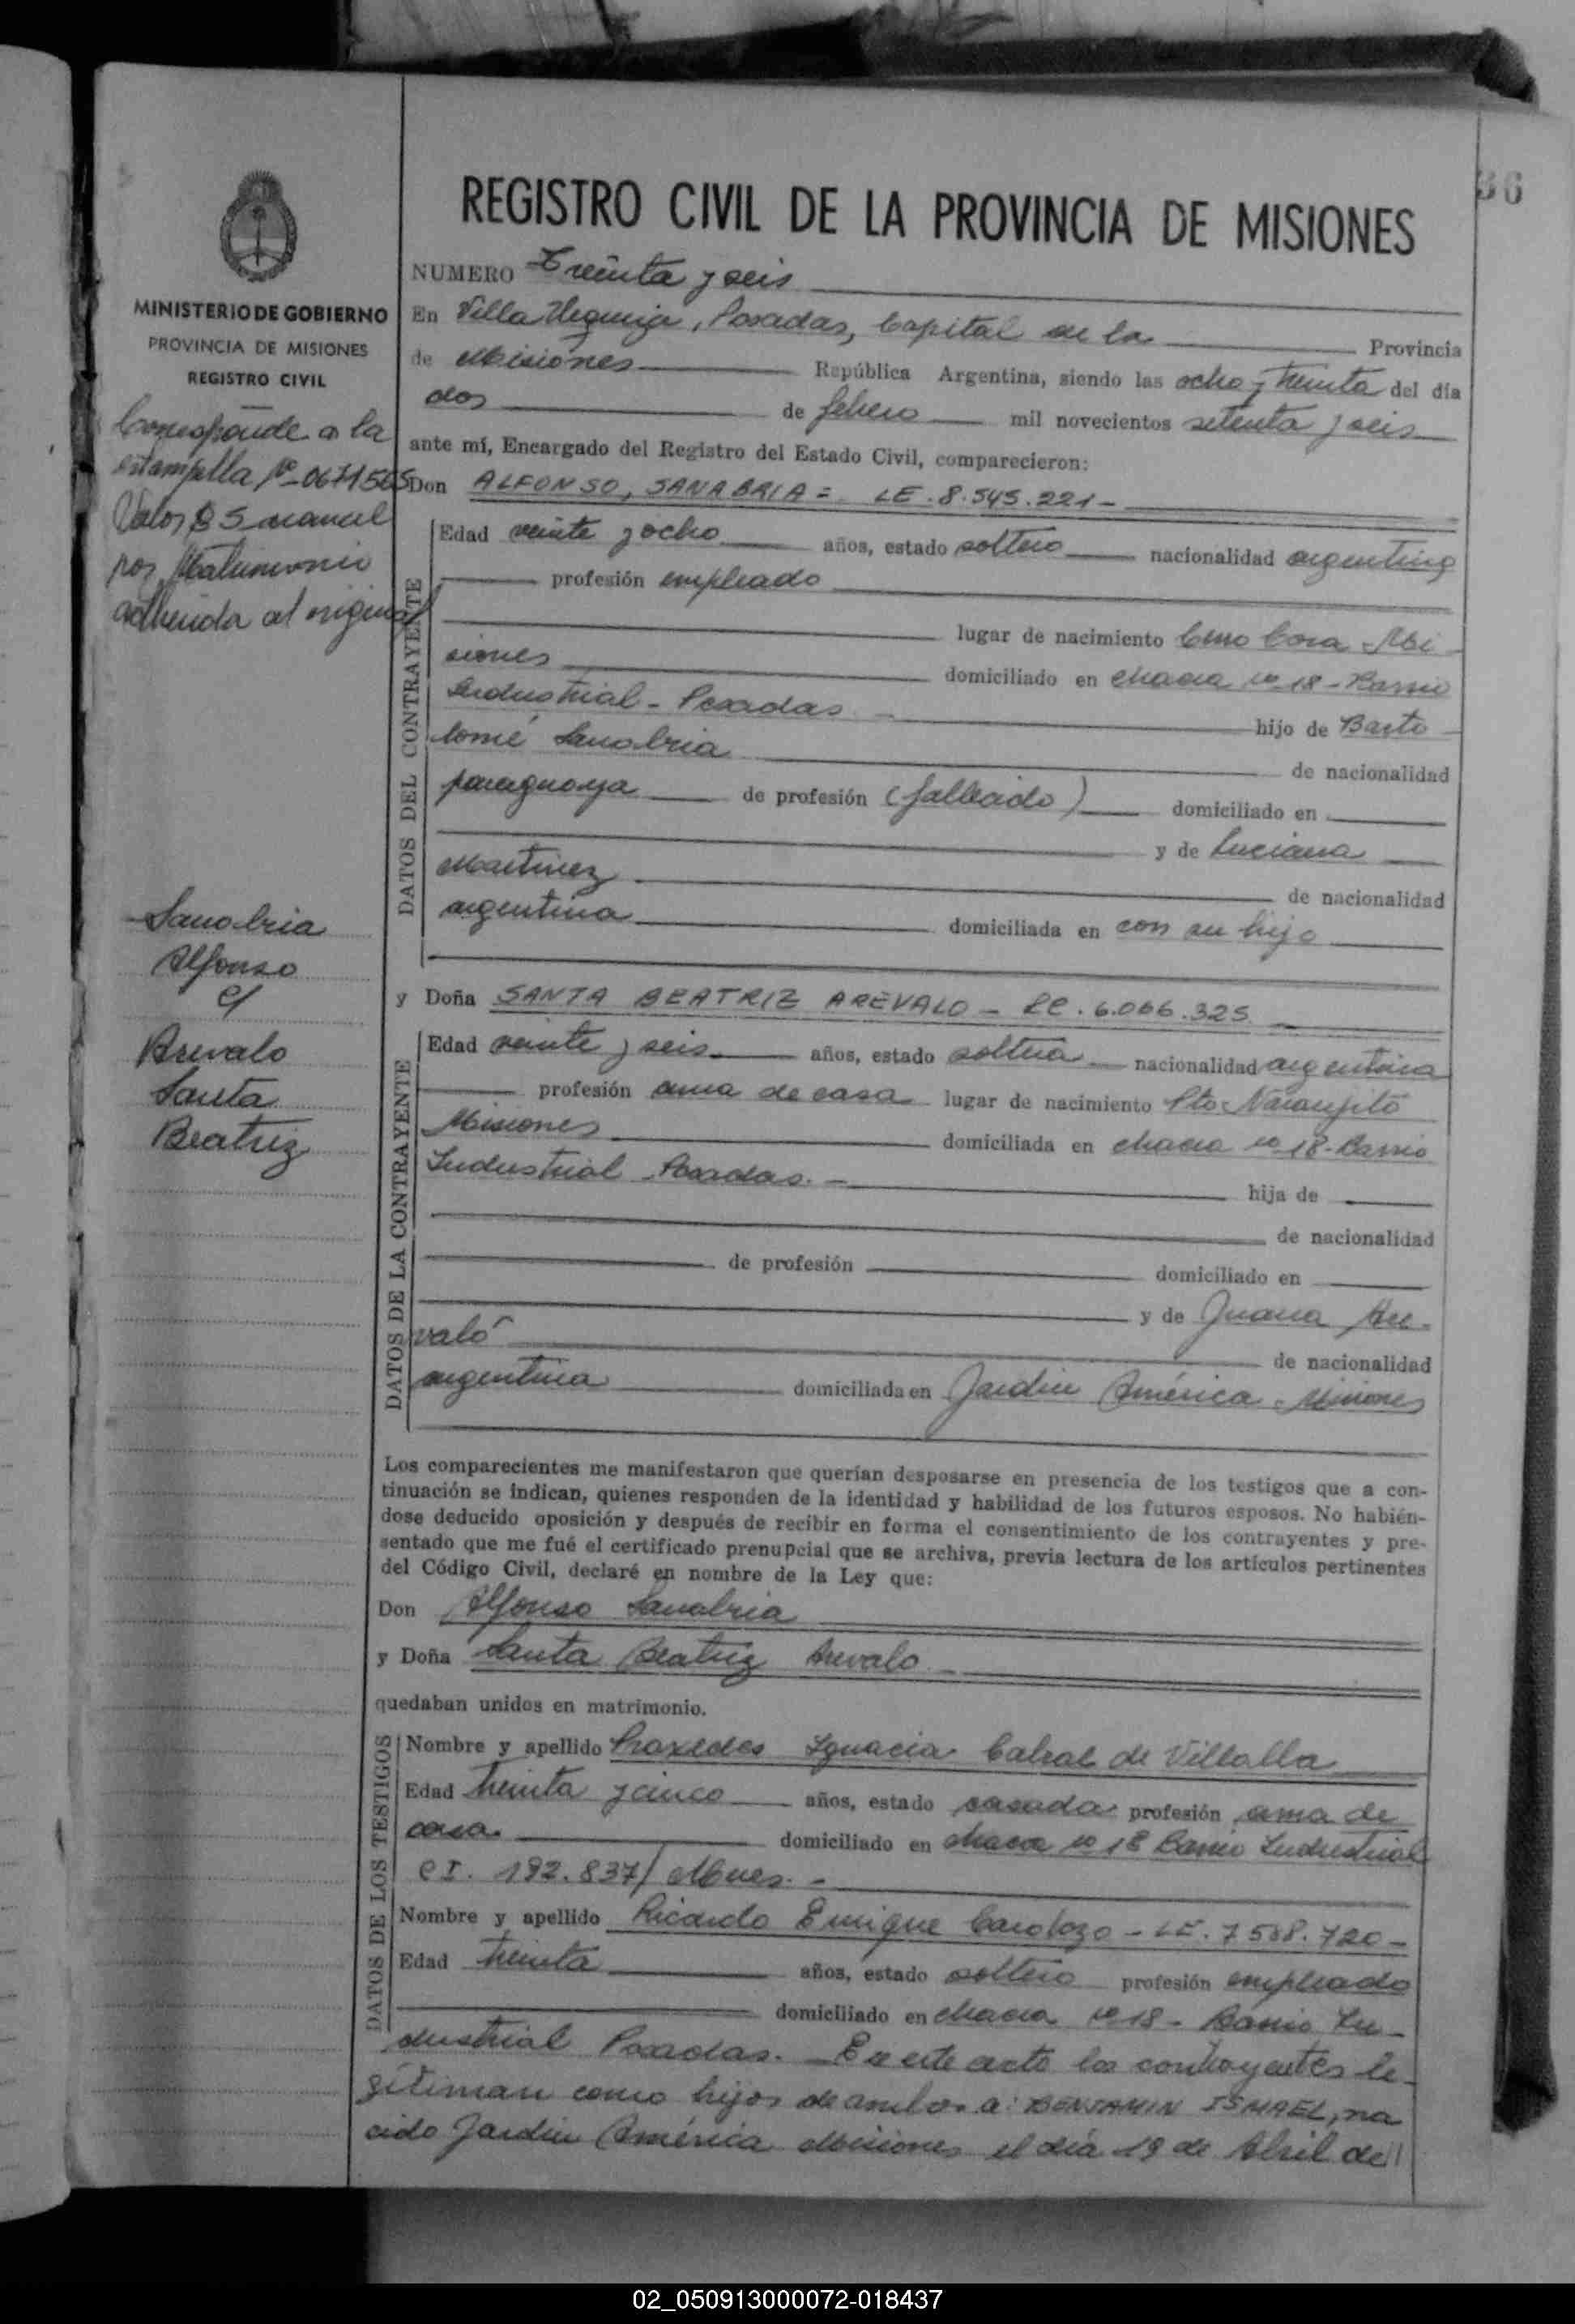 36
REGISTRO CIVIL DE LA PROVINCIA DE MISIONES
MINISTERIO DE GOBIERNO
PROVINCIA DE MISIONES
REGISTRO CIVIL
Corresponde a la
estampilla Nº 0671565
Valor $ 5
por Matrimonio
adherida al original
Sanabria
Alfonso
c/
Arevalo
Santa
Beatriz
NUMERO Treinta y seis
En Villa Urquiza, Posadas, Capital de la Provincia
de Misiones República Argentina, siendo las ocho y treinta del día
dos de febrero mil novecientos setenta y seis
ante mí, Encargado del Registro del Estado Civil, comparecieron:
Don ALFONSO, SANABRIA = LE. 8.545.221-
DATOS DEL CONTRAYENTE
Edad veinte y ocho años, estado soltero nacionalidad argentina
profesión empleado
lugar de nacimiento Cerro Cora - Mi
siones domiciliado en chacra nº 18 - Barrio
Industrial - Posadas - hijo de Barto
lomé Sanabria de nacionalidad
paraguaya de profesión (fallecido) domiciliado en
y de Luciana
Martinez de nacionalidad
argentina domiciliada en con su hijo
y Doña SANTA BEATRIZ AREVALO - LC. 6.066.325
DATOS DE LA CONTRAYENTE
Edad veinte y seis años, estado soltera nacionalidad argentina
profesión ama de casa lugar de nacimiento Pto. Naranjito
Misiones domiciliada en chacra nº 18 - Barrio
Industrial - Posadas. - hija de
de nacionalidad
de profesión domiciliado en
y de Juana Are-
valo de nacionalidad
argentina domiciliada en Jardin América - Misiones
Los comparecientes me manifestaron que querían desposarse en presencia de los testigos que a con-
tinuación se indican, quienes responden de la identidad y habilidad de los futuros esposos. No habién-
dose deducido oposición y después de recibir en forma el consentimiento de los contrayentes y pre-
sentado que me fué el certificado prenupcial que se archiva, previa lectura de los artículos pertinentes
del Código Civil, declaré en nombre de la Ley que:
Don Alfonso Sanabria
y Doña Santa Beatriz Arevalo -
quedaban unidos en matrimonio.
DATOS DE LOS TESTIGOS
Nombre y apellido Praxedes Ignacia Cabral de Villalba
Edad treinta y cinco años, estado casada profesión ama de
casa domiciliado en chacra nº 18 Barrio Industrial
CI. 192.837/ Mnes. -
Nombre y apellido Ricardo Enrique Cardozo - LE. 7.588.720-
Edad treinta años, estado soltero profesión empleado
domiciliado en chacra nº 18 - Barrio In-
dustrial Posadas. - En este acto los contrayentes le-
gitiman como hijos de ambos a: BENJAMIN ISMAEL, na
cido Jardin América Misiones el día 19 de Abril de //
02_050913000072-018437